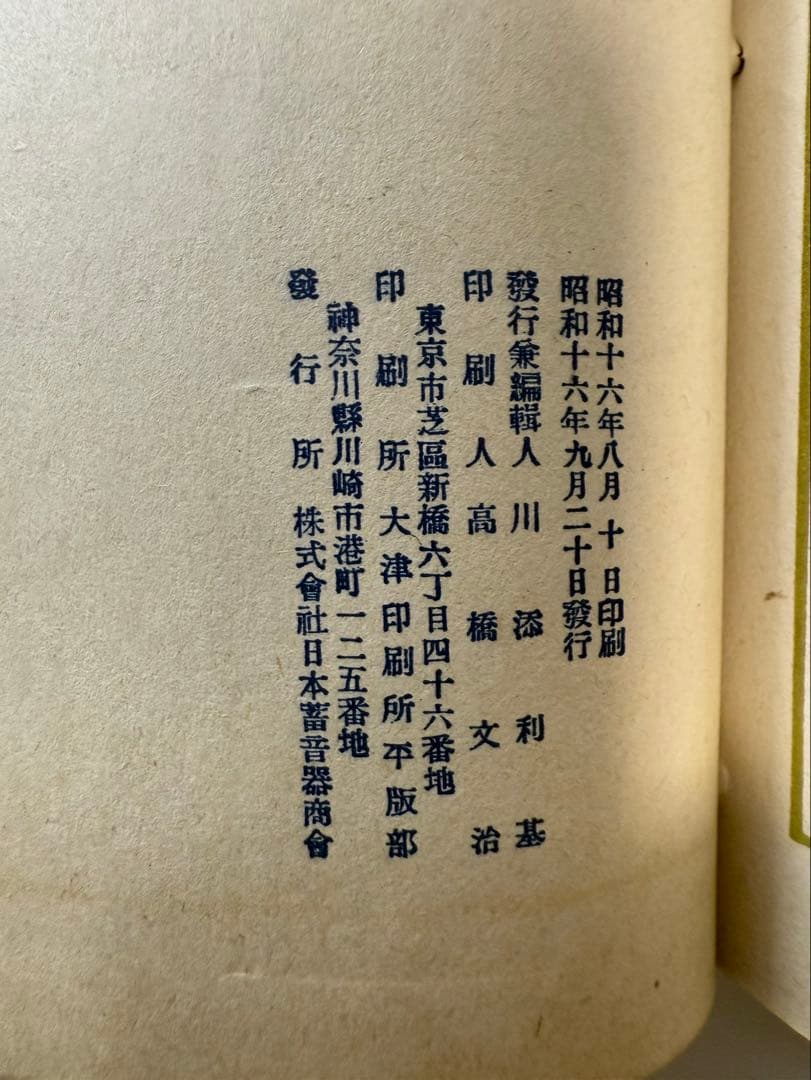 昭和十六年八月十日印刷
昭和十六年九月二十日發行
發行兼編輯人 川添利基
印刷人 高橋文治
東京市芝區新橋六丁目四十六番地
印刷所 大津印刷所平版部
神奈川縣川崎市港町一二五番地
發行所 株式會社日本蓄音器商會